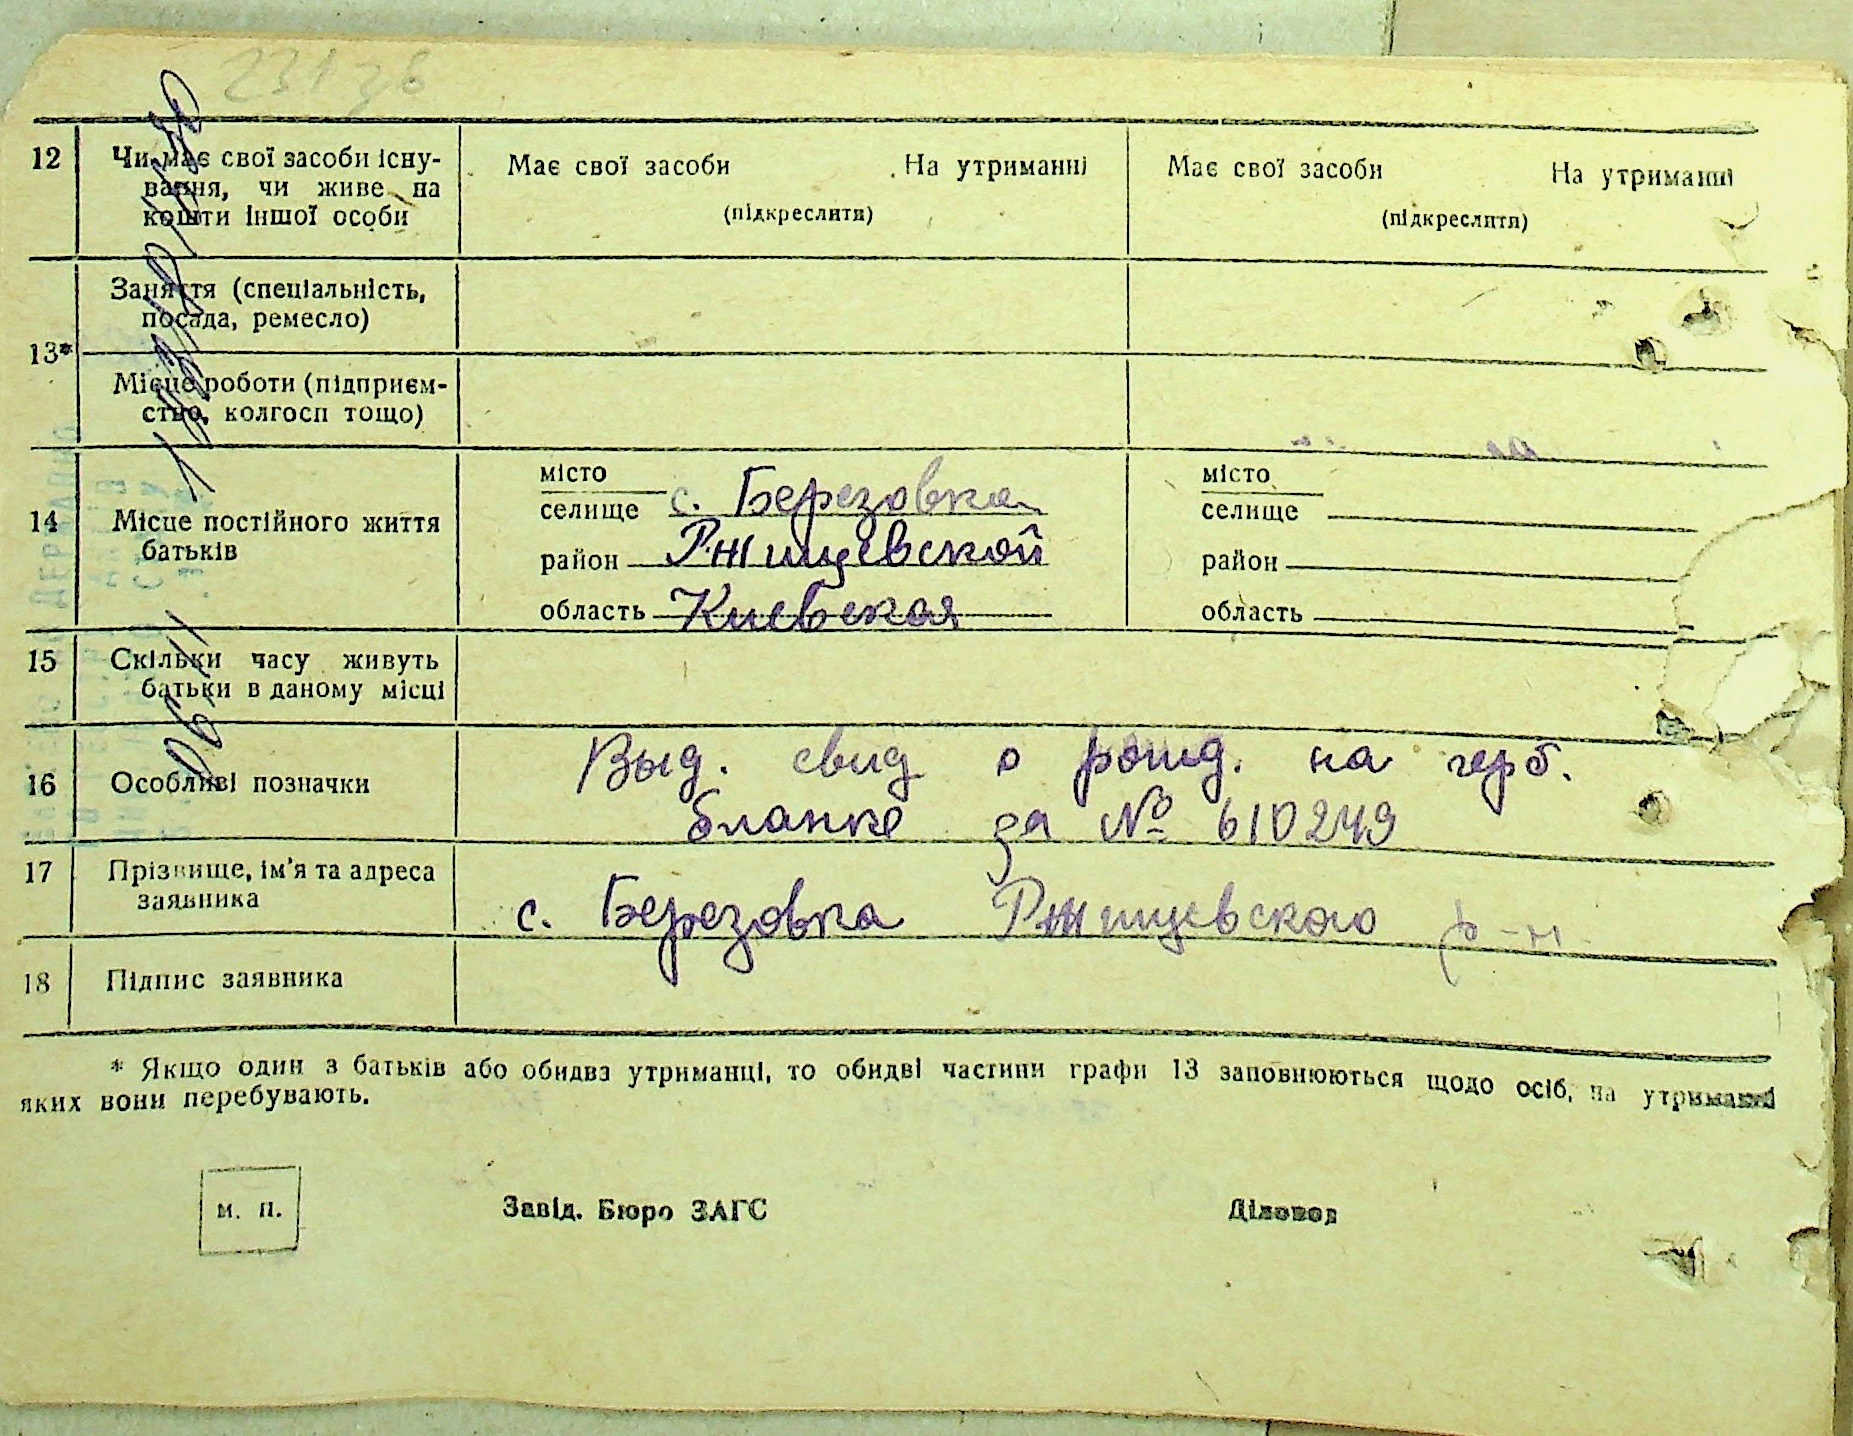 12 Чи має свої засоби існу-
вання, чи живе на
кошти іншої особи
Має свої засоби На утриманні
(підкреслити)
Має свої засоби На утриманні
(підкреслити)
13*
Заняття (спеціальність,
посада, ремесло)
Місце роботи (підприєм-
ство, колгосп тощо)
14 Місце постійного життя
батьків
місто
селище с. Березовка
район Ржищевской
область Киевская
місто
селище
район
область
15 Скільки часу живуть
батьки в даному місці
16 Особливі позначки
Выд. свид о рожд. на герб.
бланке за № 610249
17 Прізвище, ім'я та адреса
заявника
с. Березовка Ржищевского р-н
18 Підпис заявника
* Якщо один з батьків або обидва утриманці, то обидві частини графи 13 заповнюються щодо осіб, на утриманні
яких вони перебувають.
м. п.
Завід. Бюро ЗАГС
Діловод